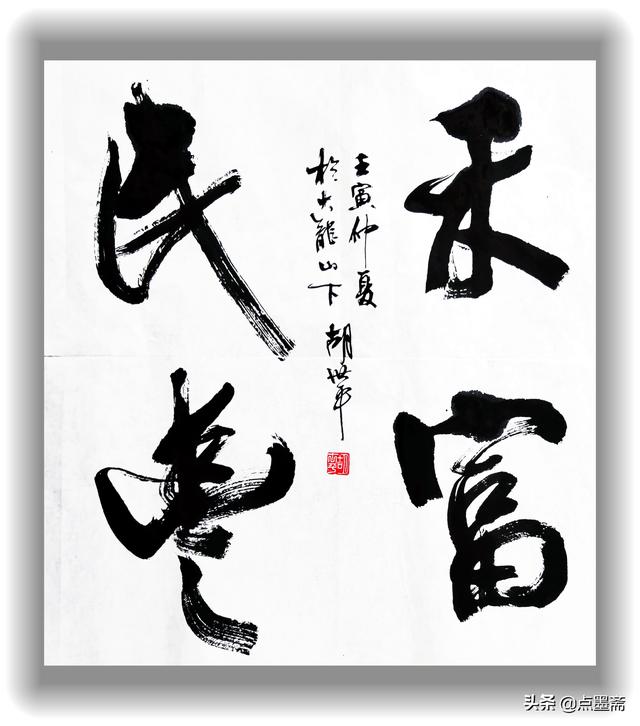 禾富
民
壬寅仲夏
於大龍山下 胡世
头条 @点墨斋